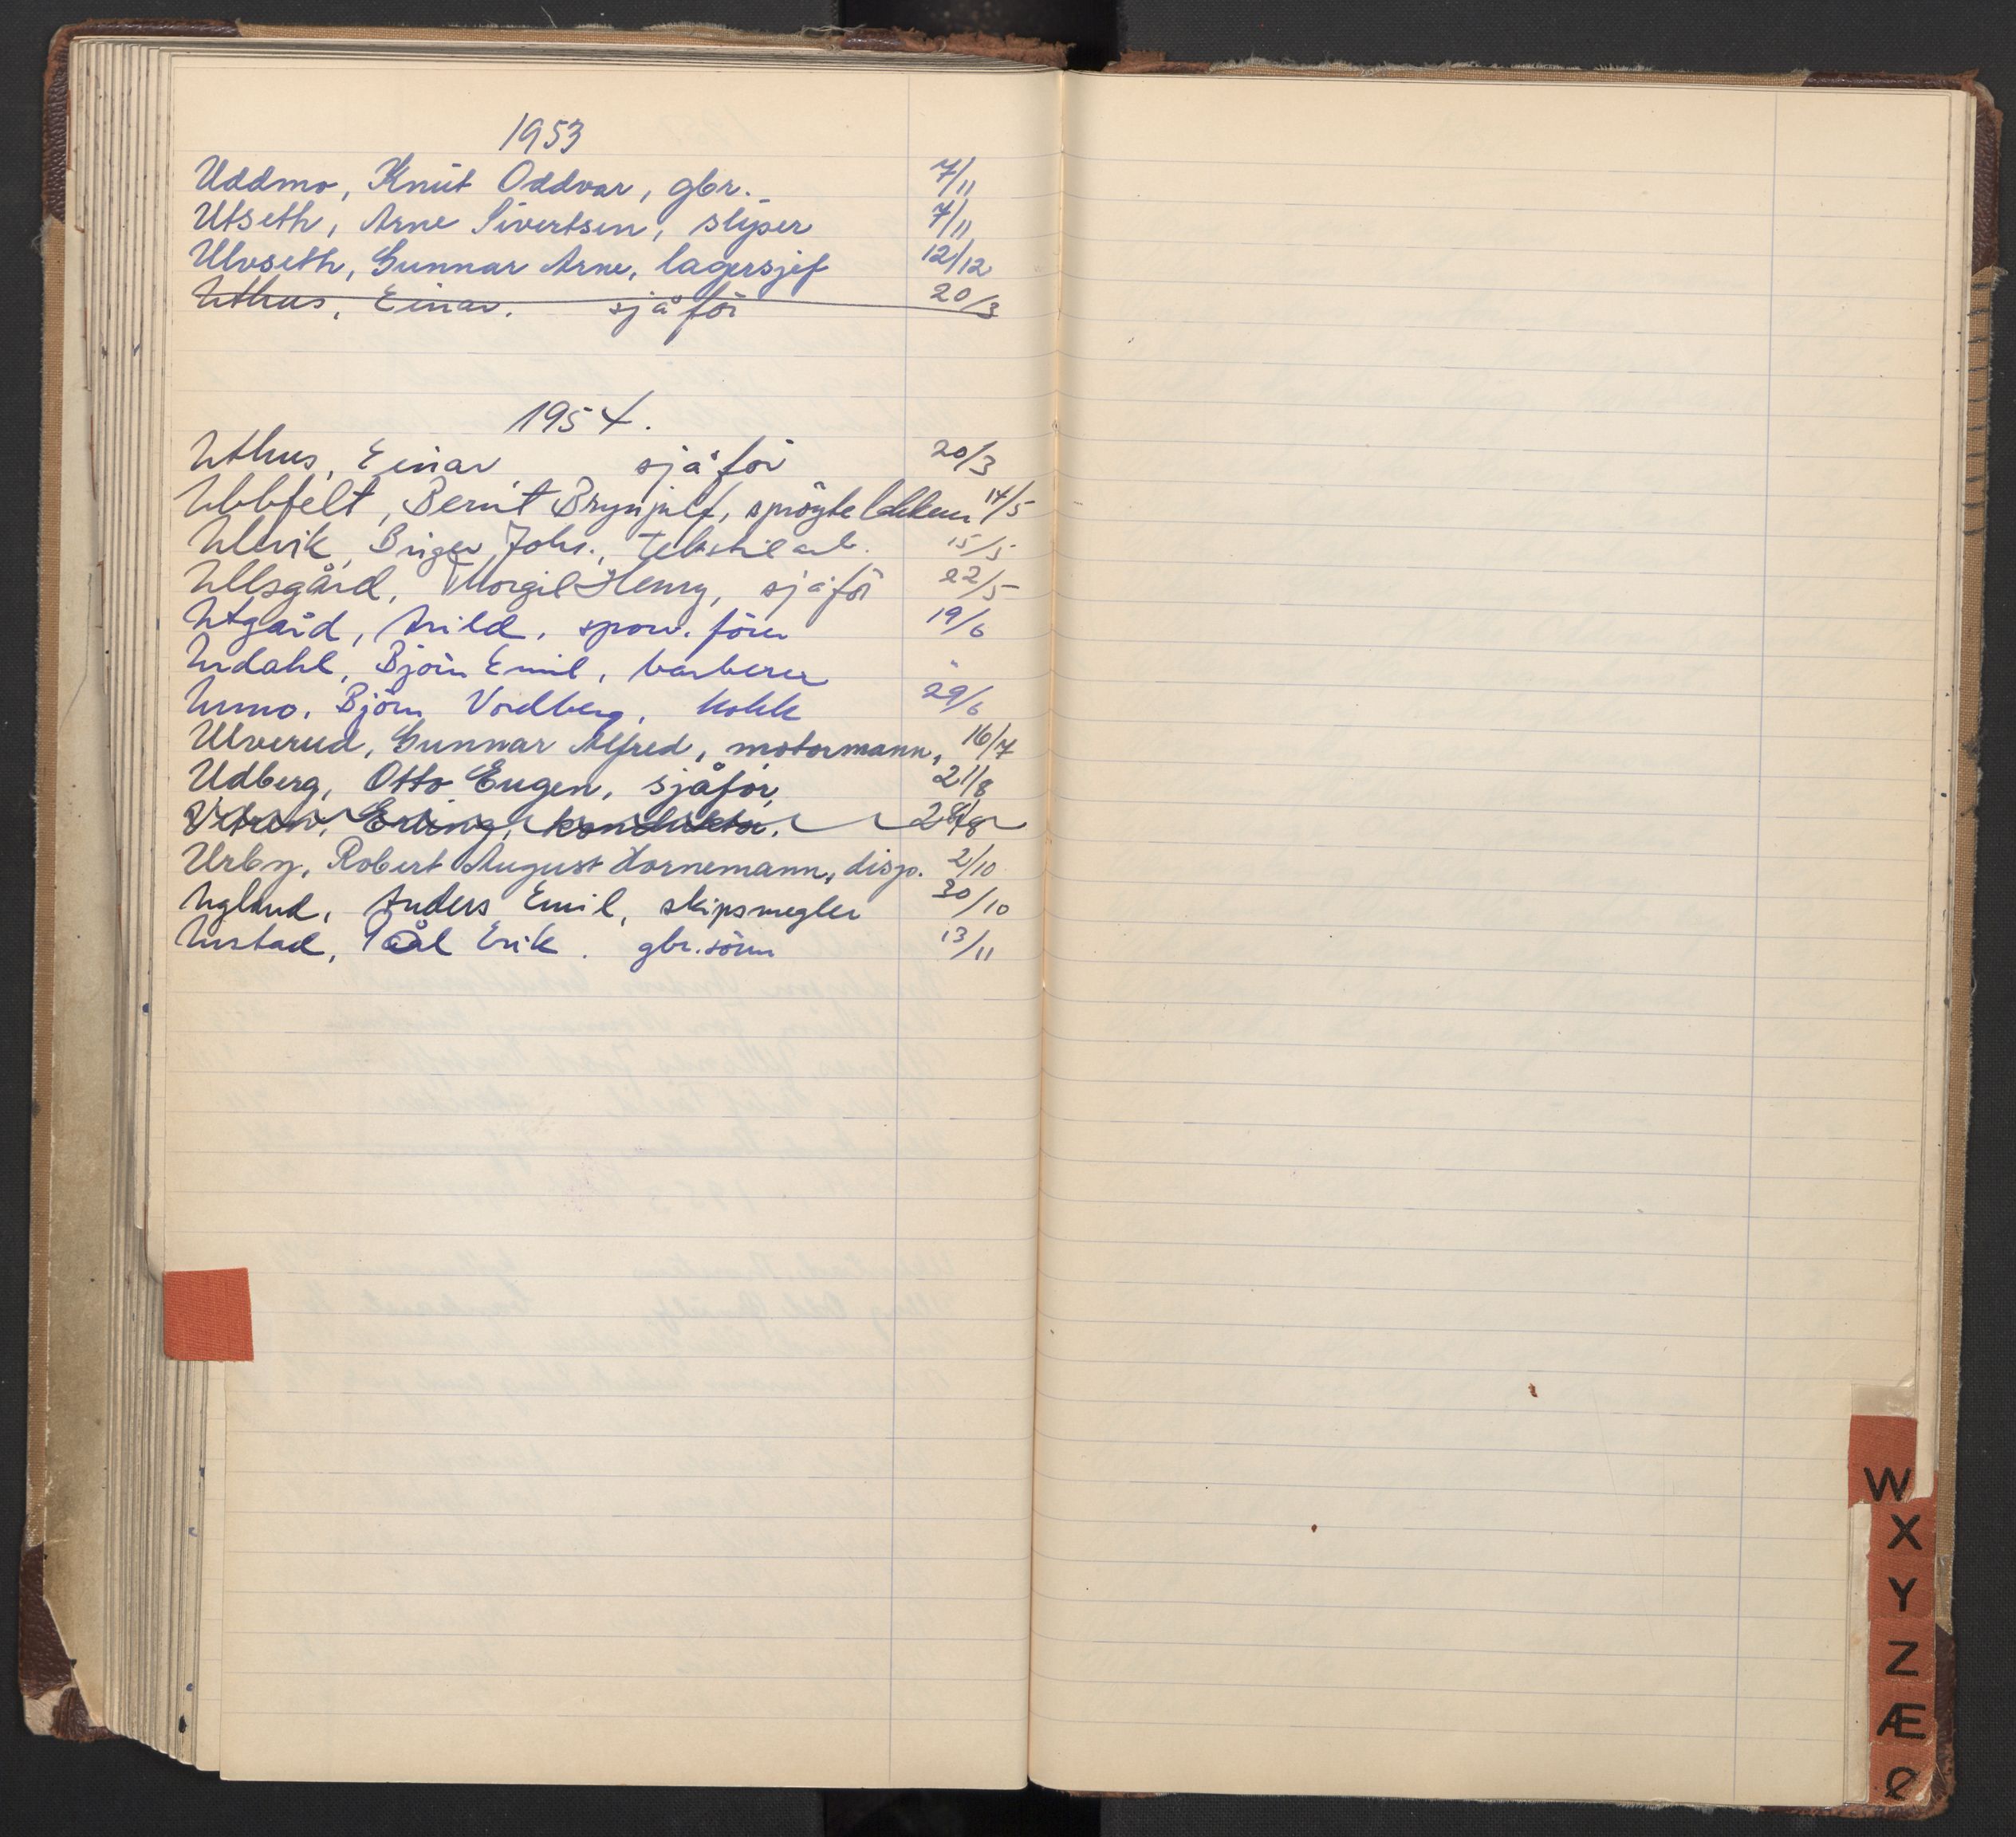 1953
Uddmo, Knut Oddvar, gbr. 7/11
Utseth, Arne Sivertsen, sliper 7/11
Ulvseth, Gunnar Arne, lagersjef 12/12
Uthus, Einar. sjåför 20/3
1954.
Uthus, Einar sjåför 20/3
Ubbfelt, Bernt Brynjulf, 14/5
Ulvik, Johs., tekstilarb. 15/5
Ullsgård, Henry, sjåför 22/5
Utgård, Arild. förer 19/6
Urdahl, Björn Emil, barberer "
Urmo, Björn Vordberg, kokk 29/6
Ulverud, Gunnar Alfred, motormann, 16/7
Udberg, Otto Eugen, sjåför, 21/8
Erling, konduktør.
Urby, Robert August Hornemann, disp. 2/10
Ugland, Anders Emil, skipsmegler 30/10
Ustad, Pål Erik. gbr.sönn 13/11
W
X
Y
Z
Æ
Ø